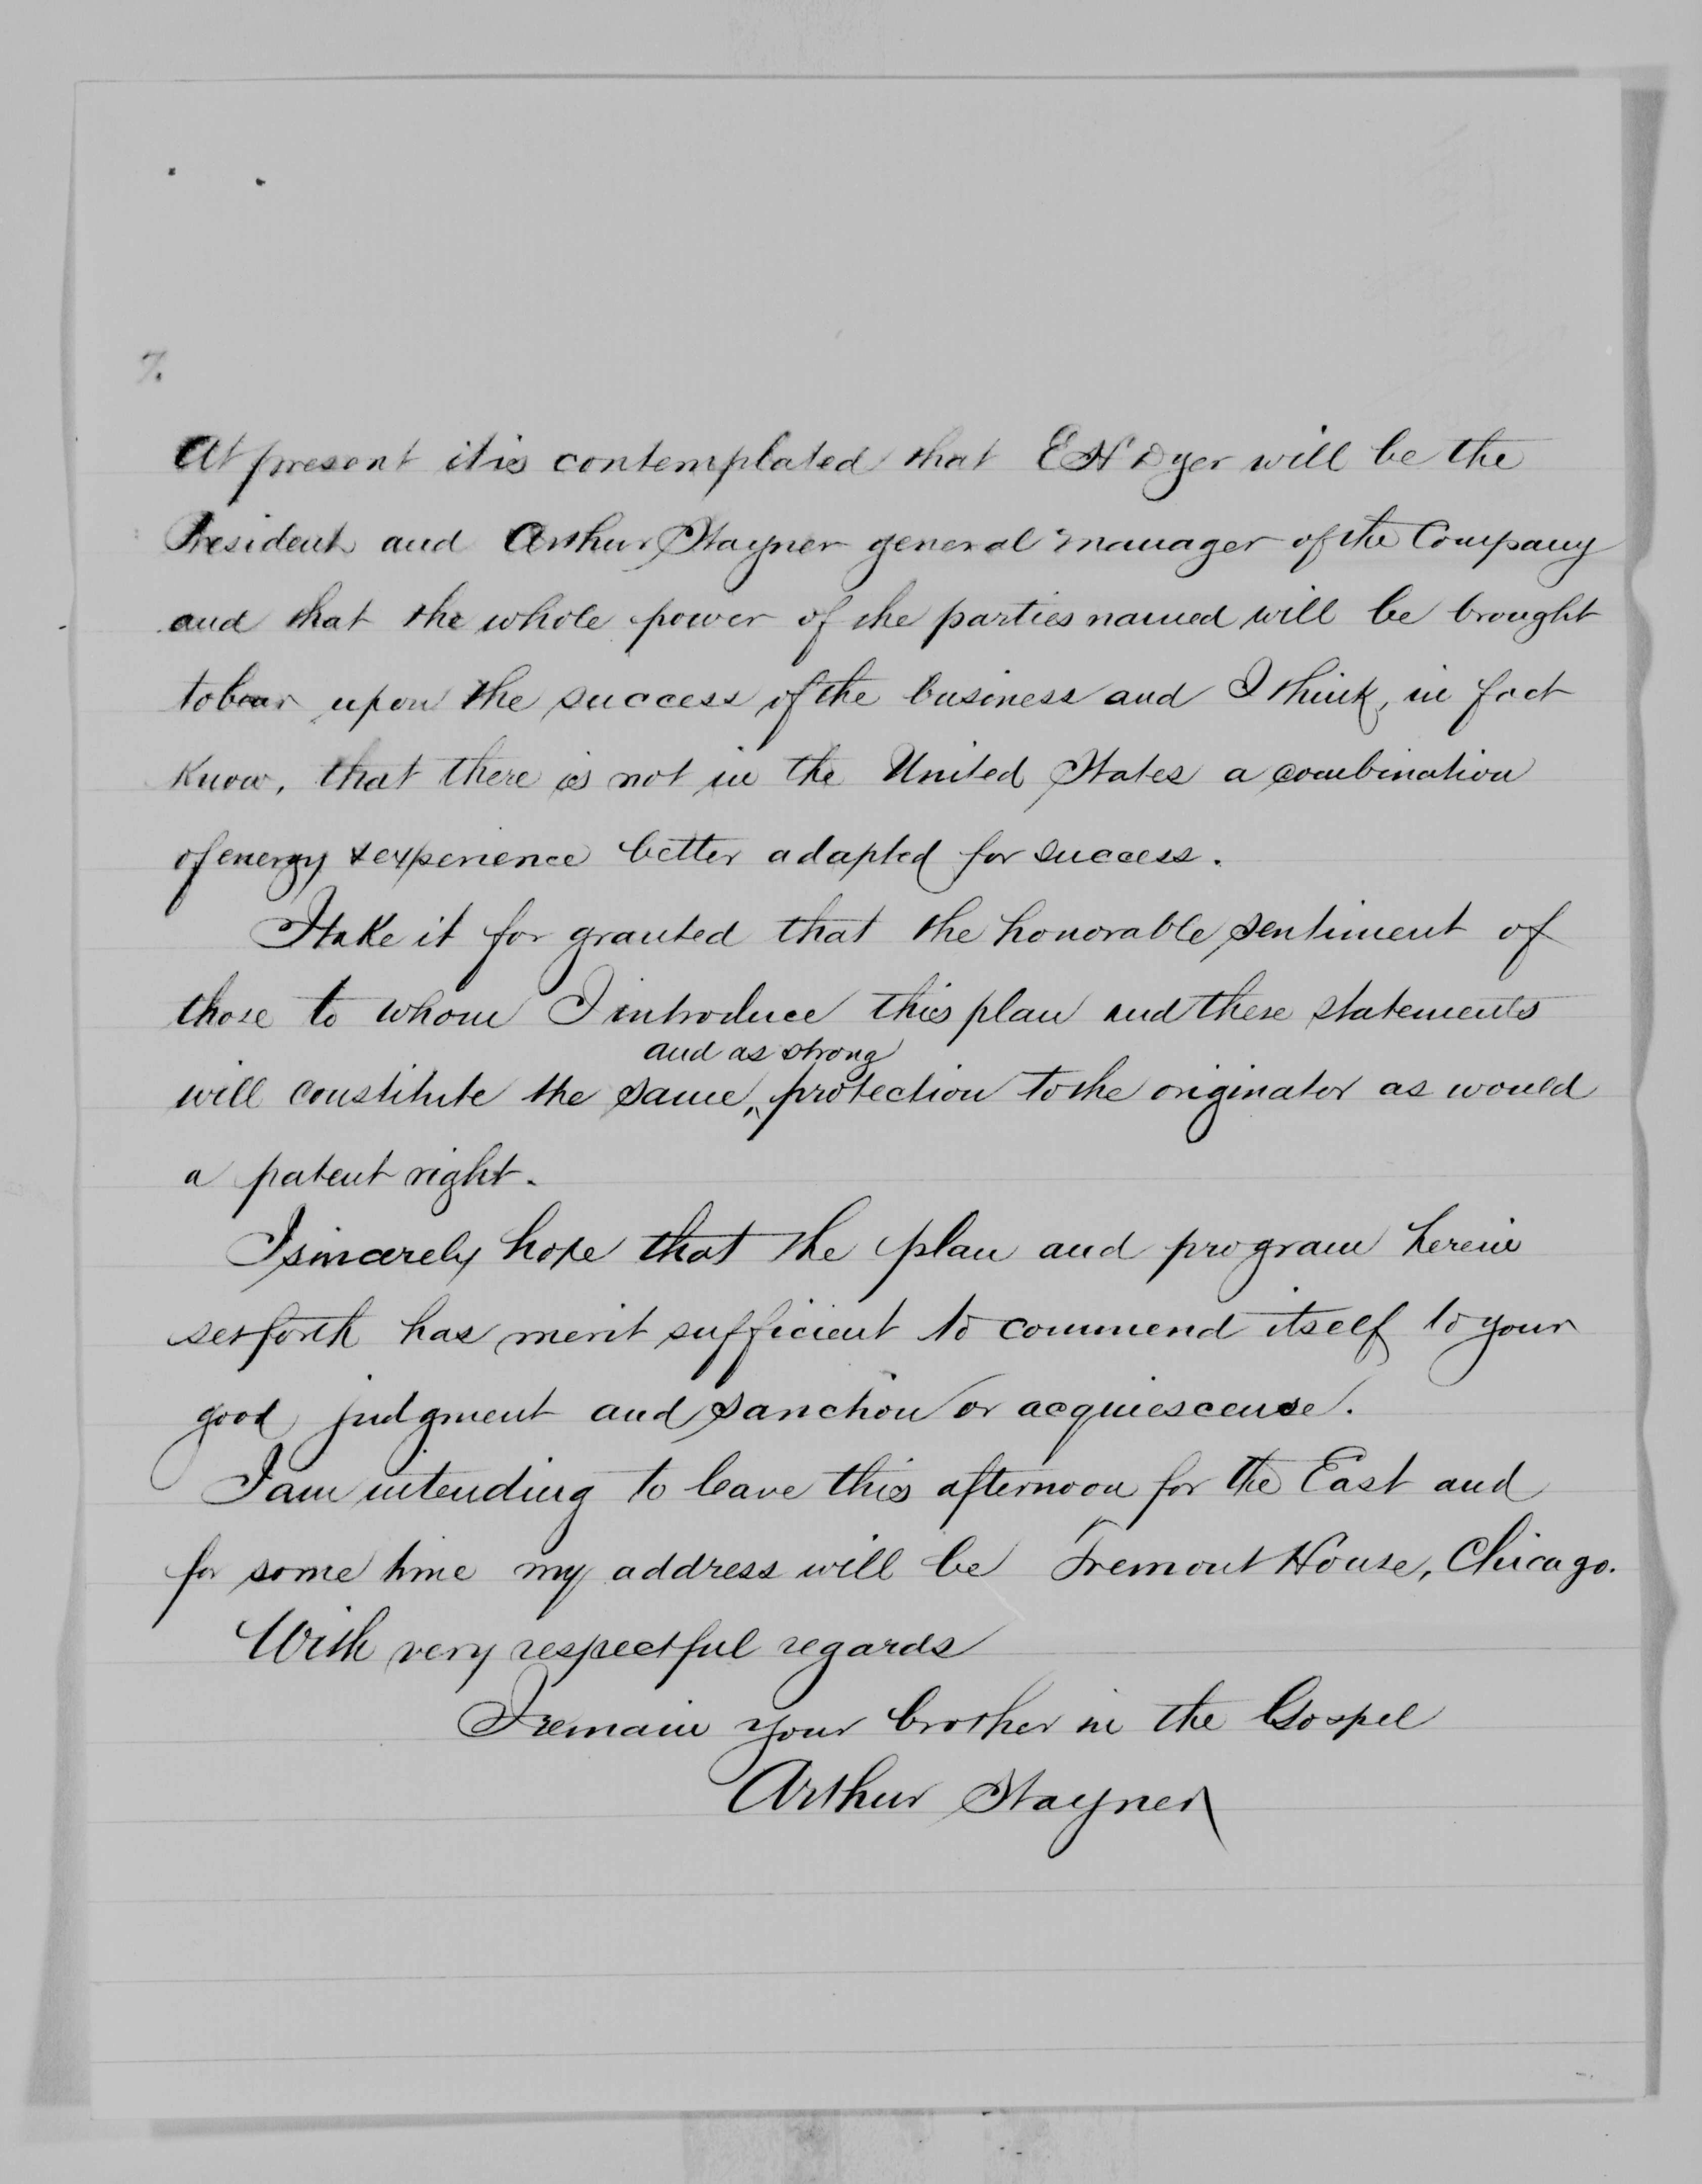 7.
At present it is contemplated that E H Dyer will be the
President and Arthur Stayner general manager of the Company
and that the whole power of the parties named will be brought
to bear upon the success of the business and I think, in fact
know, that there is not in the United States a combination
of energy & experience better adapted for success.
I take it for granted that the honorable sentiment of
those to whom I introduce this plan and these statements
and as strong
will constitute the same, protection to the originator as would
a patent right.
I sincerely hope that the plan and program herein
set forth has merit sufficient to commend itself to your
good judgment and sanction or acquiescence.
I am intending to leave this afternoon for the East and
for some time my address will be Tremont House, Chicago.
With very respectful regards
I remain your brother in the Gospel
Arthur Stayner